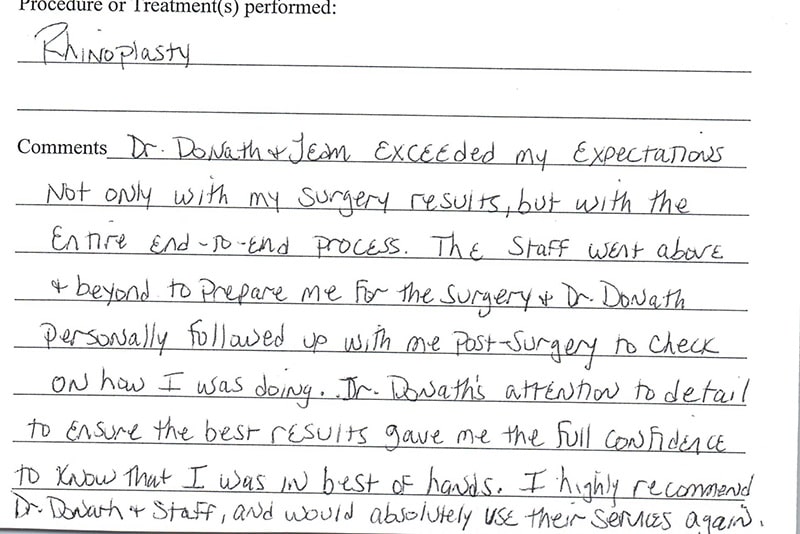 Procedure or Treatment(s) performed:
Rhinoplasty
Comments Dr. Donath & Team exceeded my expectations
Not only with my surgery results, but with the
entire end-to-end process. The staff went above
& beyond to prepare me for the surgery & Dr. Donath
personally followed up with me post-surgery to check
on how I was doing. Dr. Donath's attention to detail
to ensure the best results gave me the full confidence
to know that I was in best of hands. I highly recommend
Dr. Donath & Staff, and would absolutely use their services again.